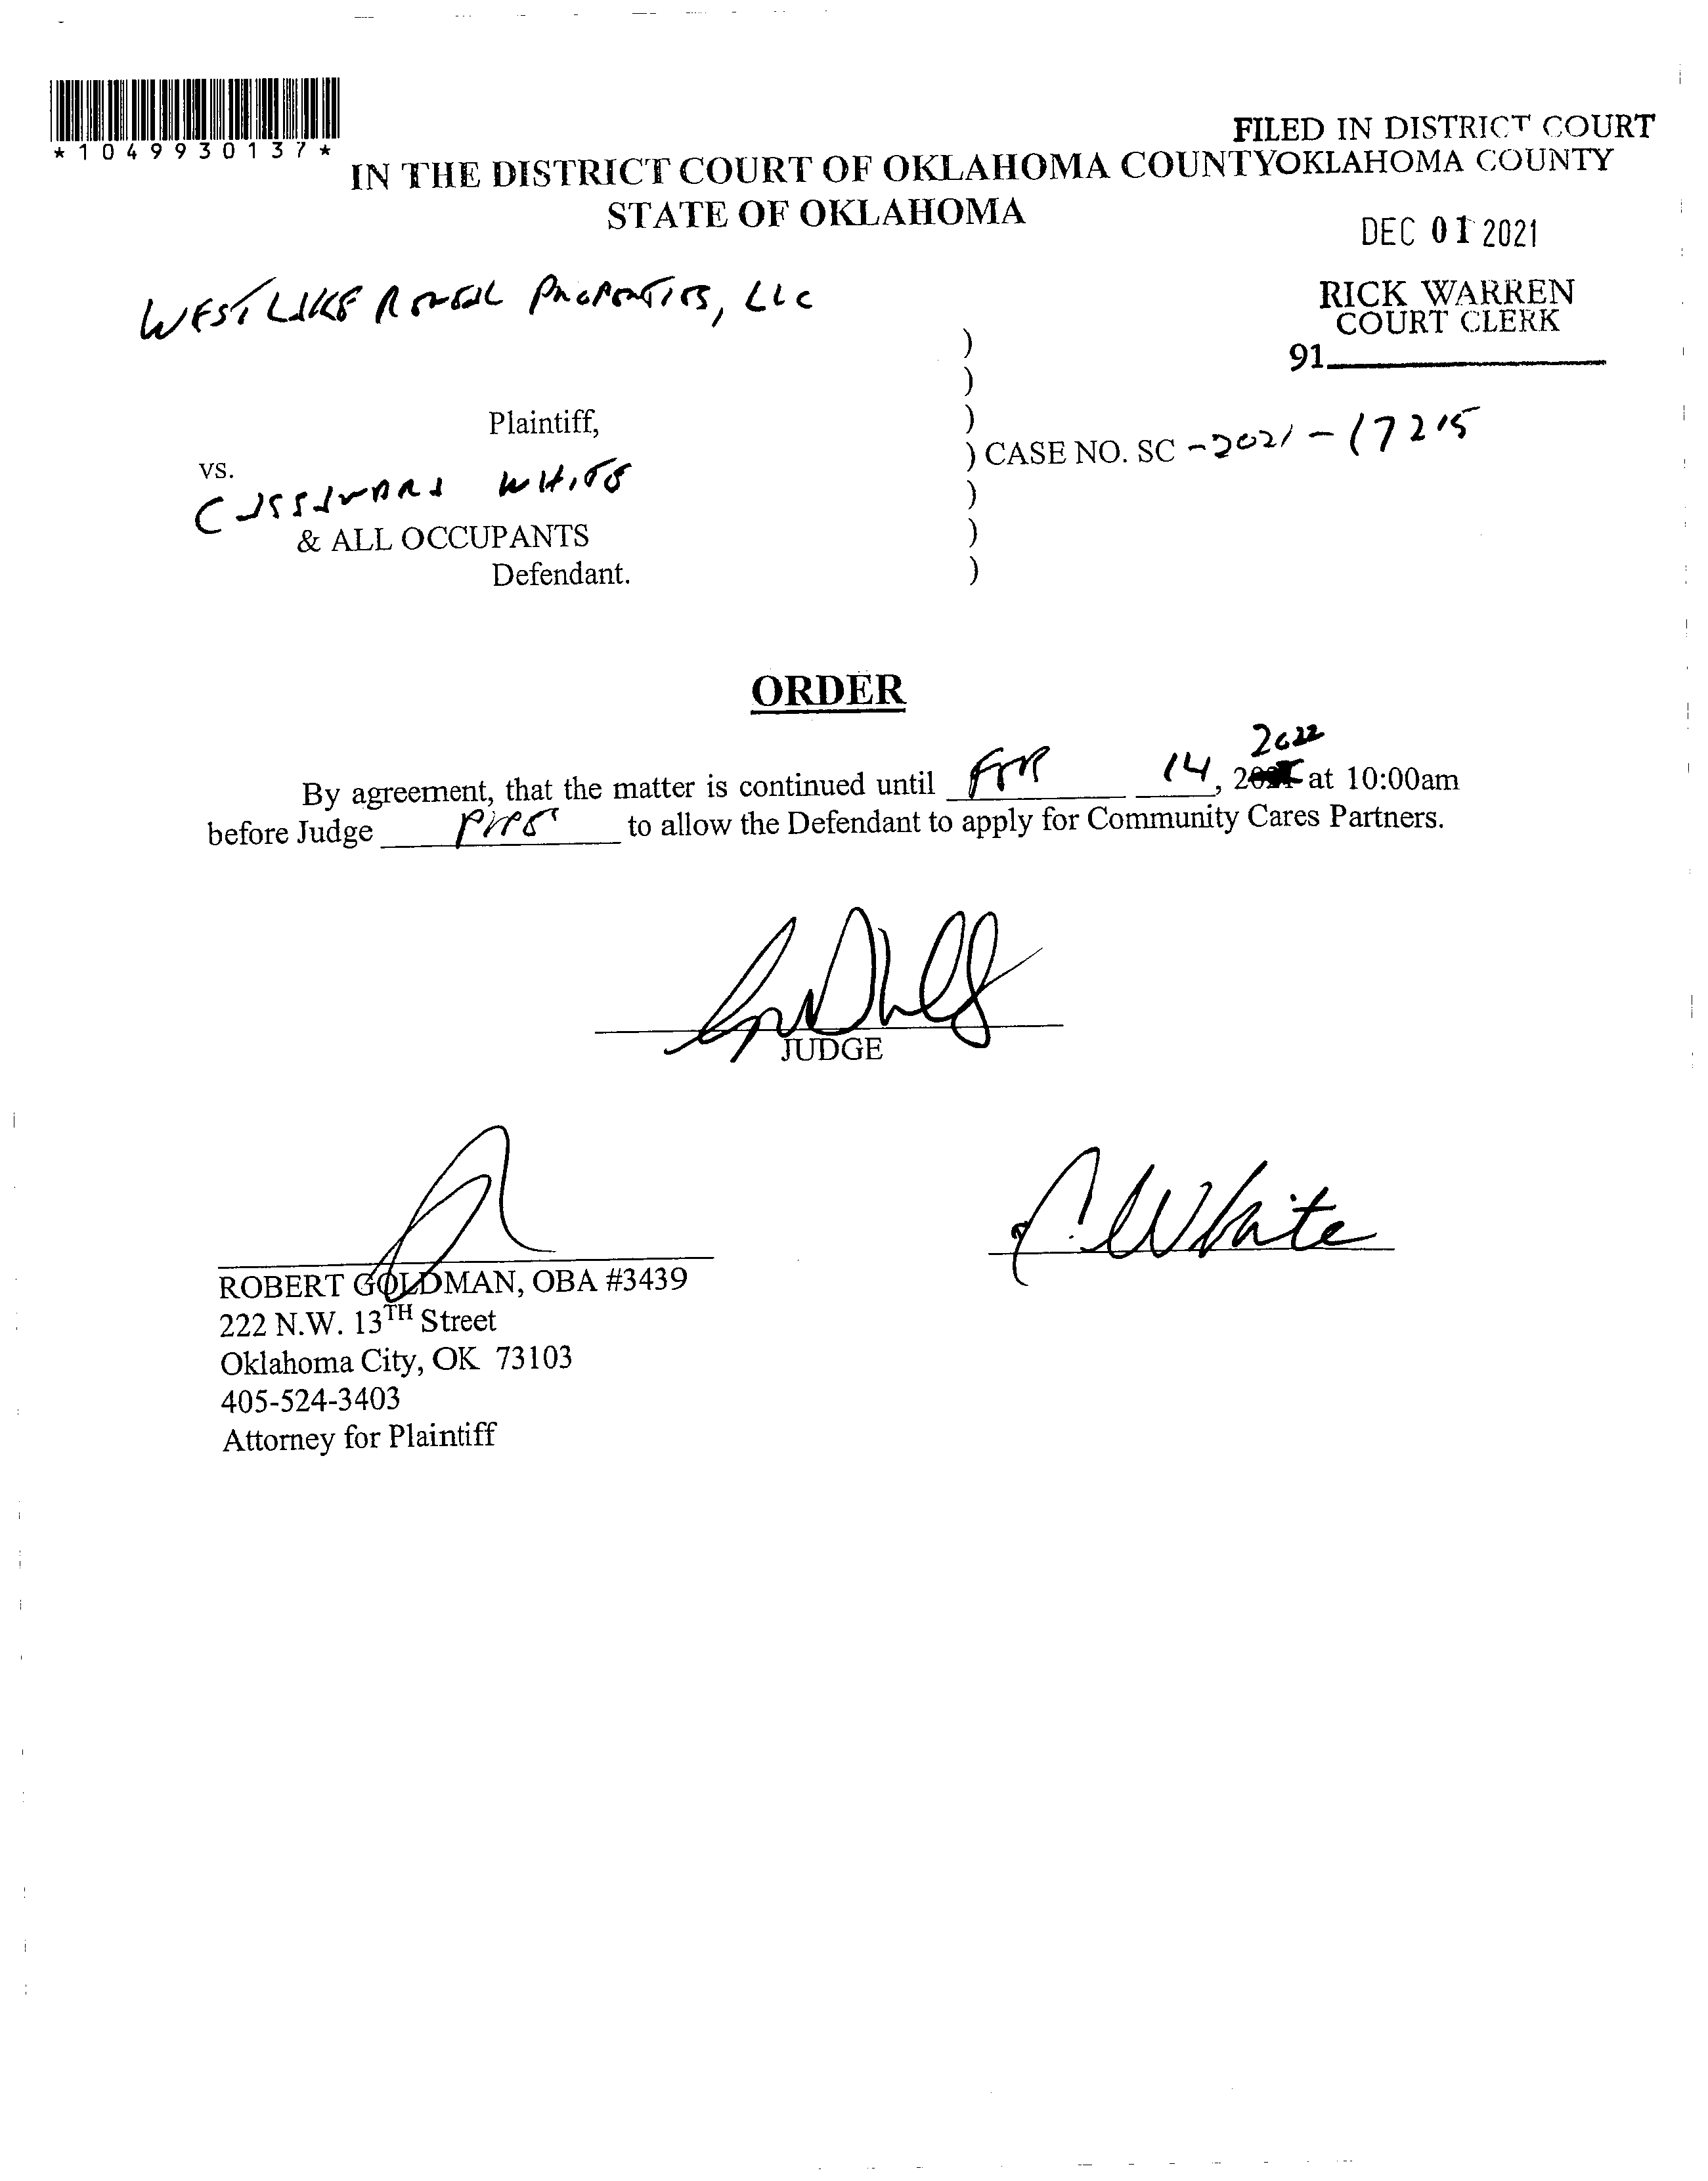 *1049930137*
FILED IN DISTRICT COURT
OKLAHOMA COUNTY
IN THE DISTRICT COURT OF OKLAHOMA COUNTY
STATE OF OKLAHOMA
DEC 01 2021
RICK WARREN
COURT CLERK
91
WESTLAKE RENTAL PROPERTIES, LLC
)
)
Plaintiff, )
vs. ) CASE NO. SC -2021-17215
WHITE )
& ALL OCCUPANTS )
Defendant. )
ORDER
2022
By agreement, that the matter is continued until FEB 14, at 10:00am
before Judge to allow the Defendant to apply for Community Cares Partners.
JUDGE
C. White
ROBERT GOLDMAN, OBA #3439
222 N.W. 13TH Street
Oklahoma City, OK 73103
405-524-3403
Attorney for Plaintiff